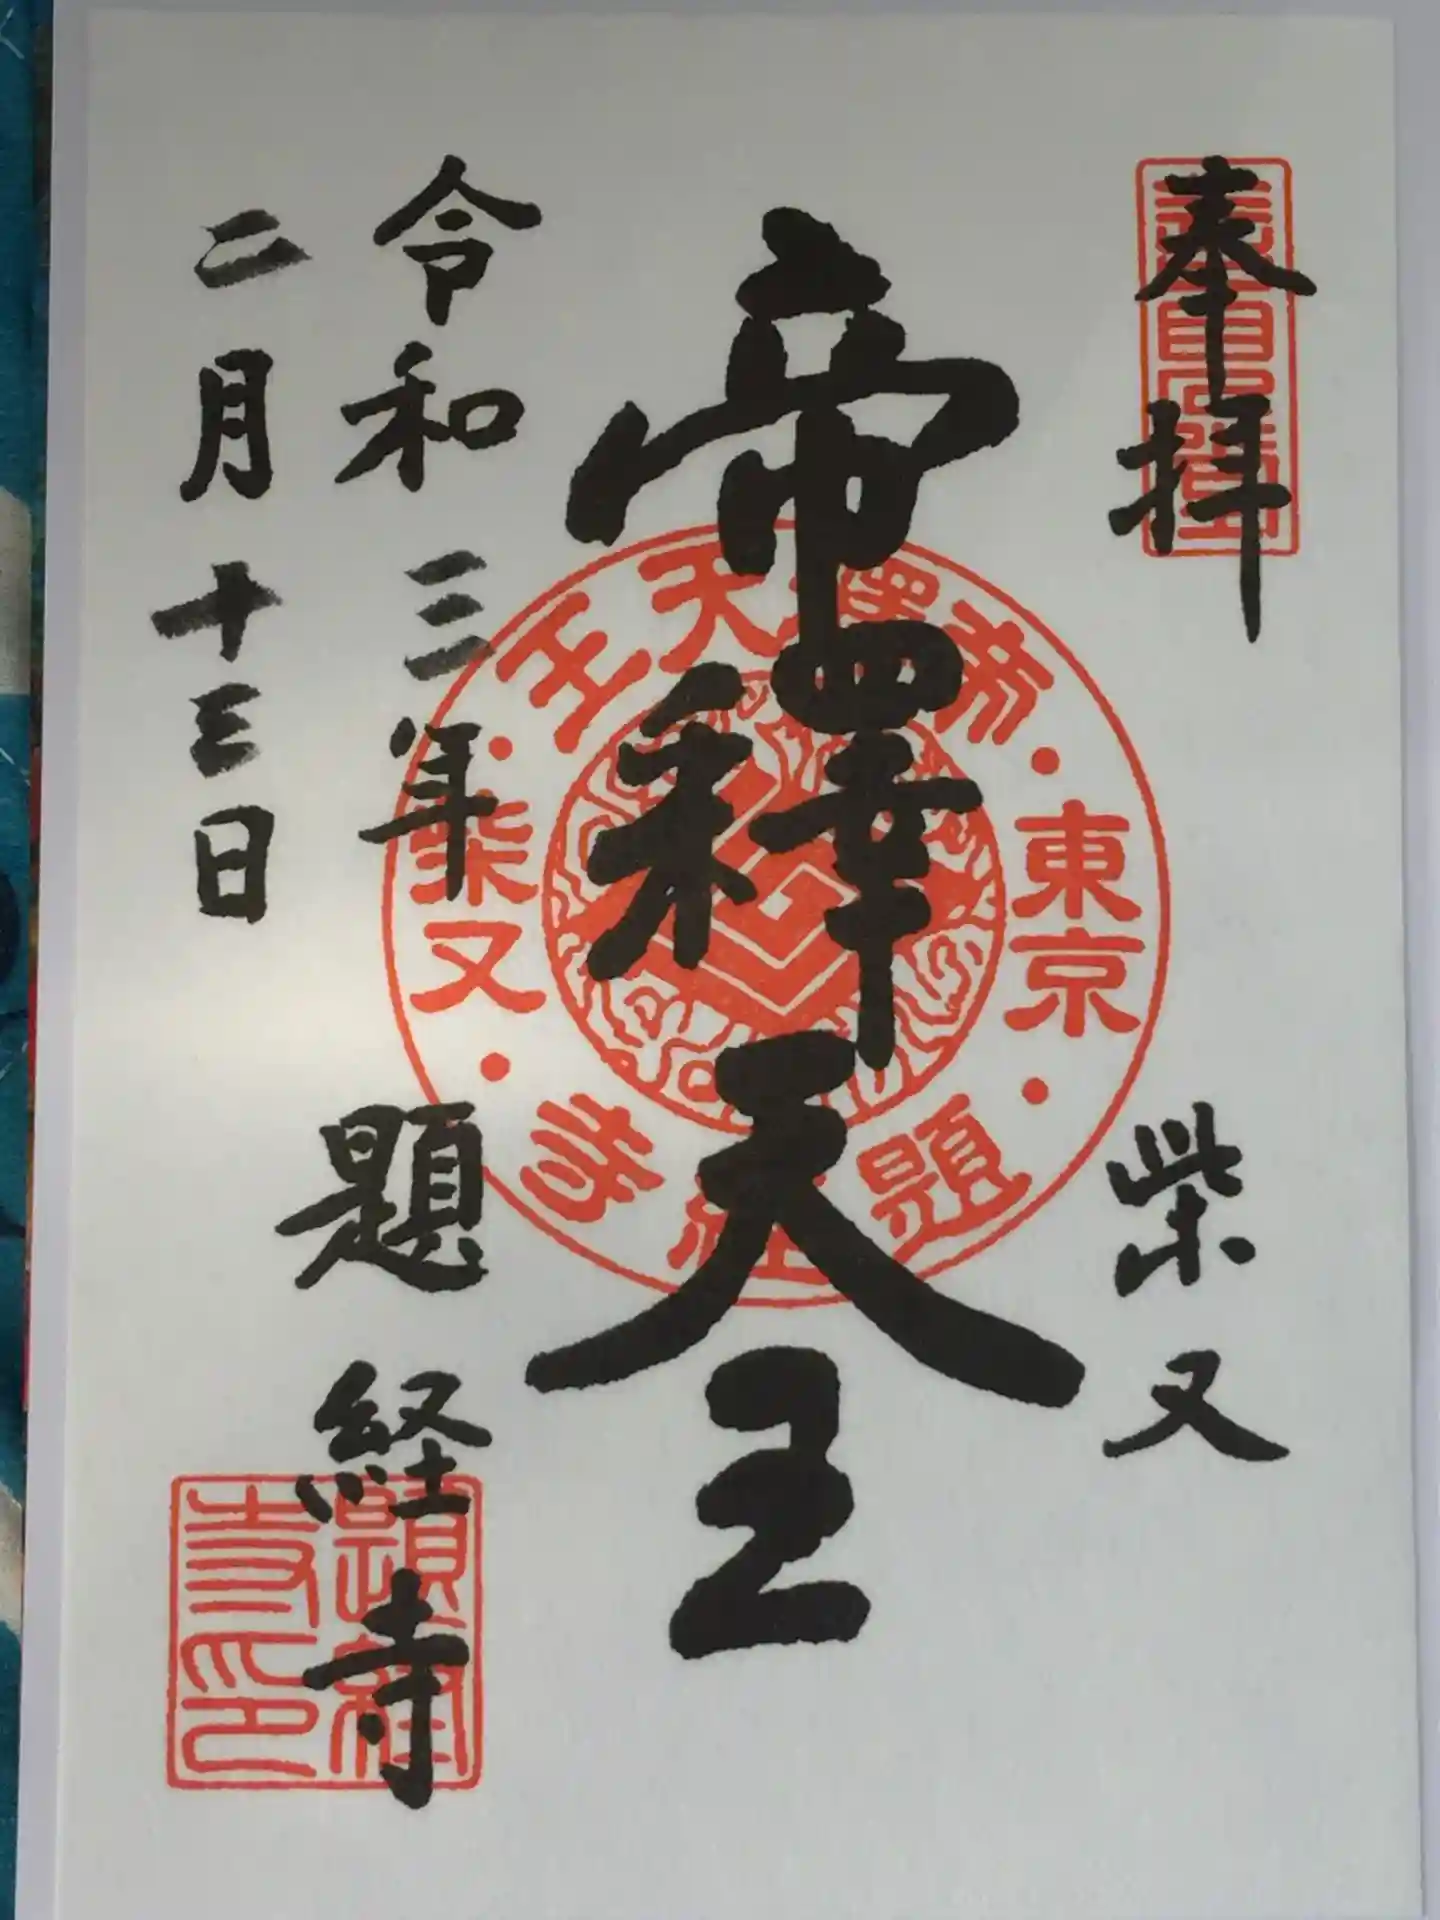 奉拝
柴又
帝釋天王
令和三年
題経寺
二月十三日
帝釋天王
東京
柴又
題経寺
題経寺印